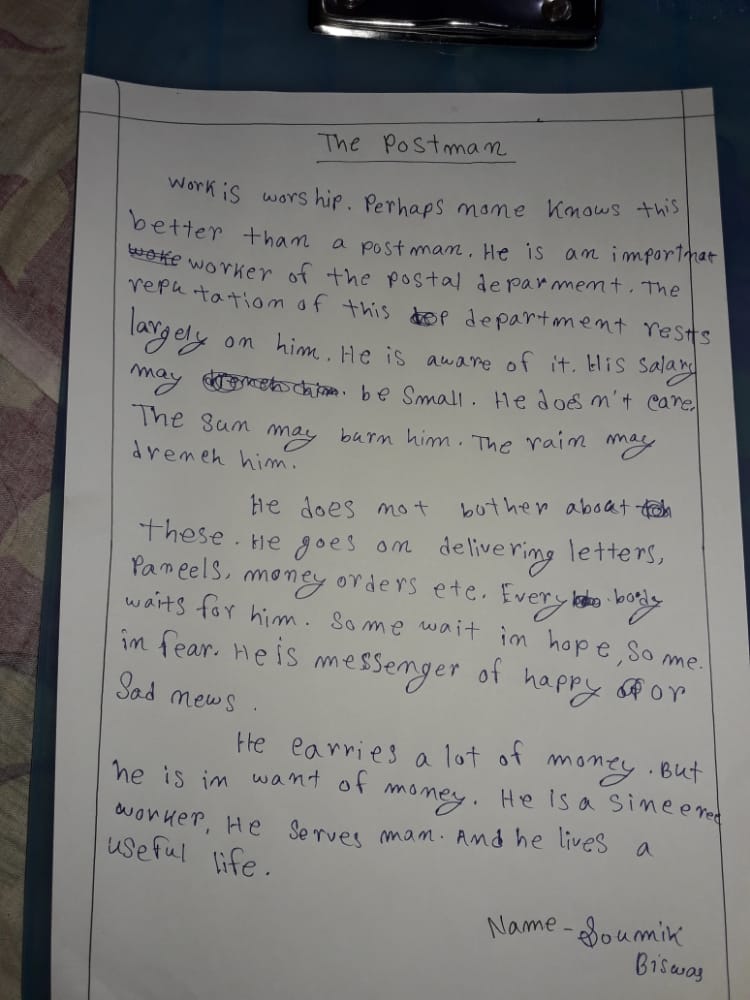 The Postman
Work is worship. Perhaps none knows this
better than a postman. He is an importnat
woke worker of the postal deparment. The
reputation of this dep department rests
largely on him. He is aware of it. His salary
may drench him. be small. He does n't care.
The sun may burn him. The rain may
drench him.
He does not bother about
these. He goes on delivering letters,
Parcels, money orders etc. Every body
waits for him. Some wait in hope, some.
in fear. He is messenger of happy or
sad news.
He carries a lot of money. But
he is in want of money. He is a sincered
worker. He serves man. And he lives a
useful life.
Name - Soumik
Biswas